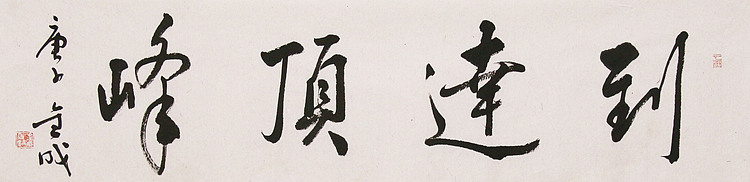 到達頂峰
庚子 金成